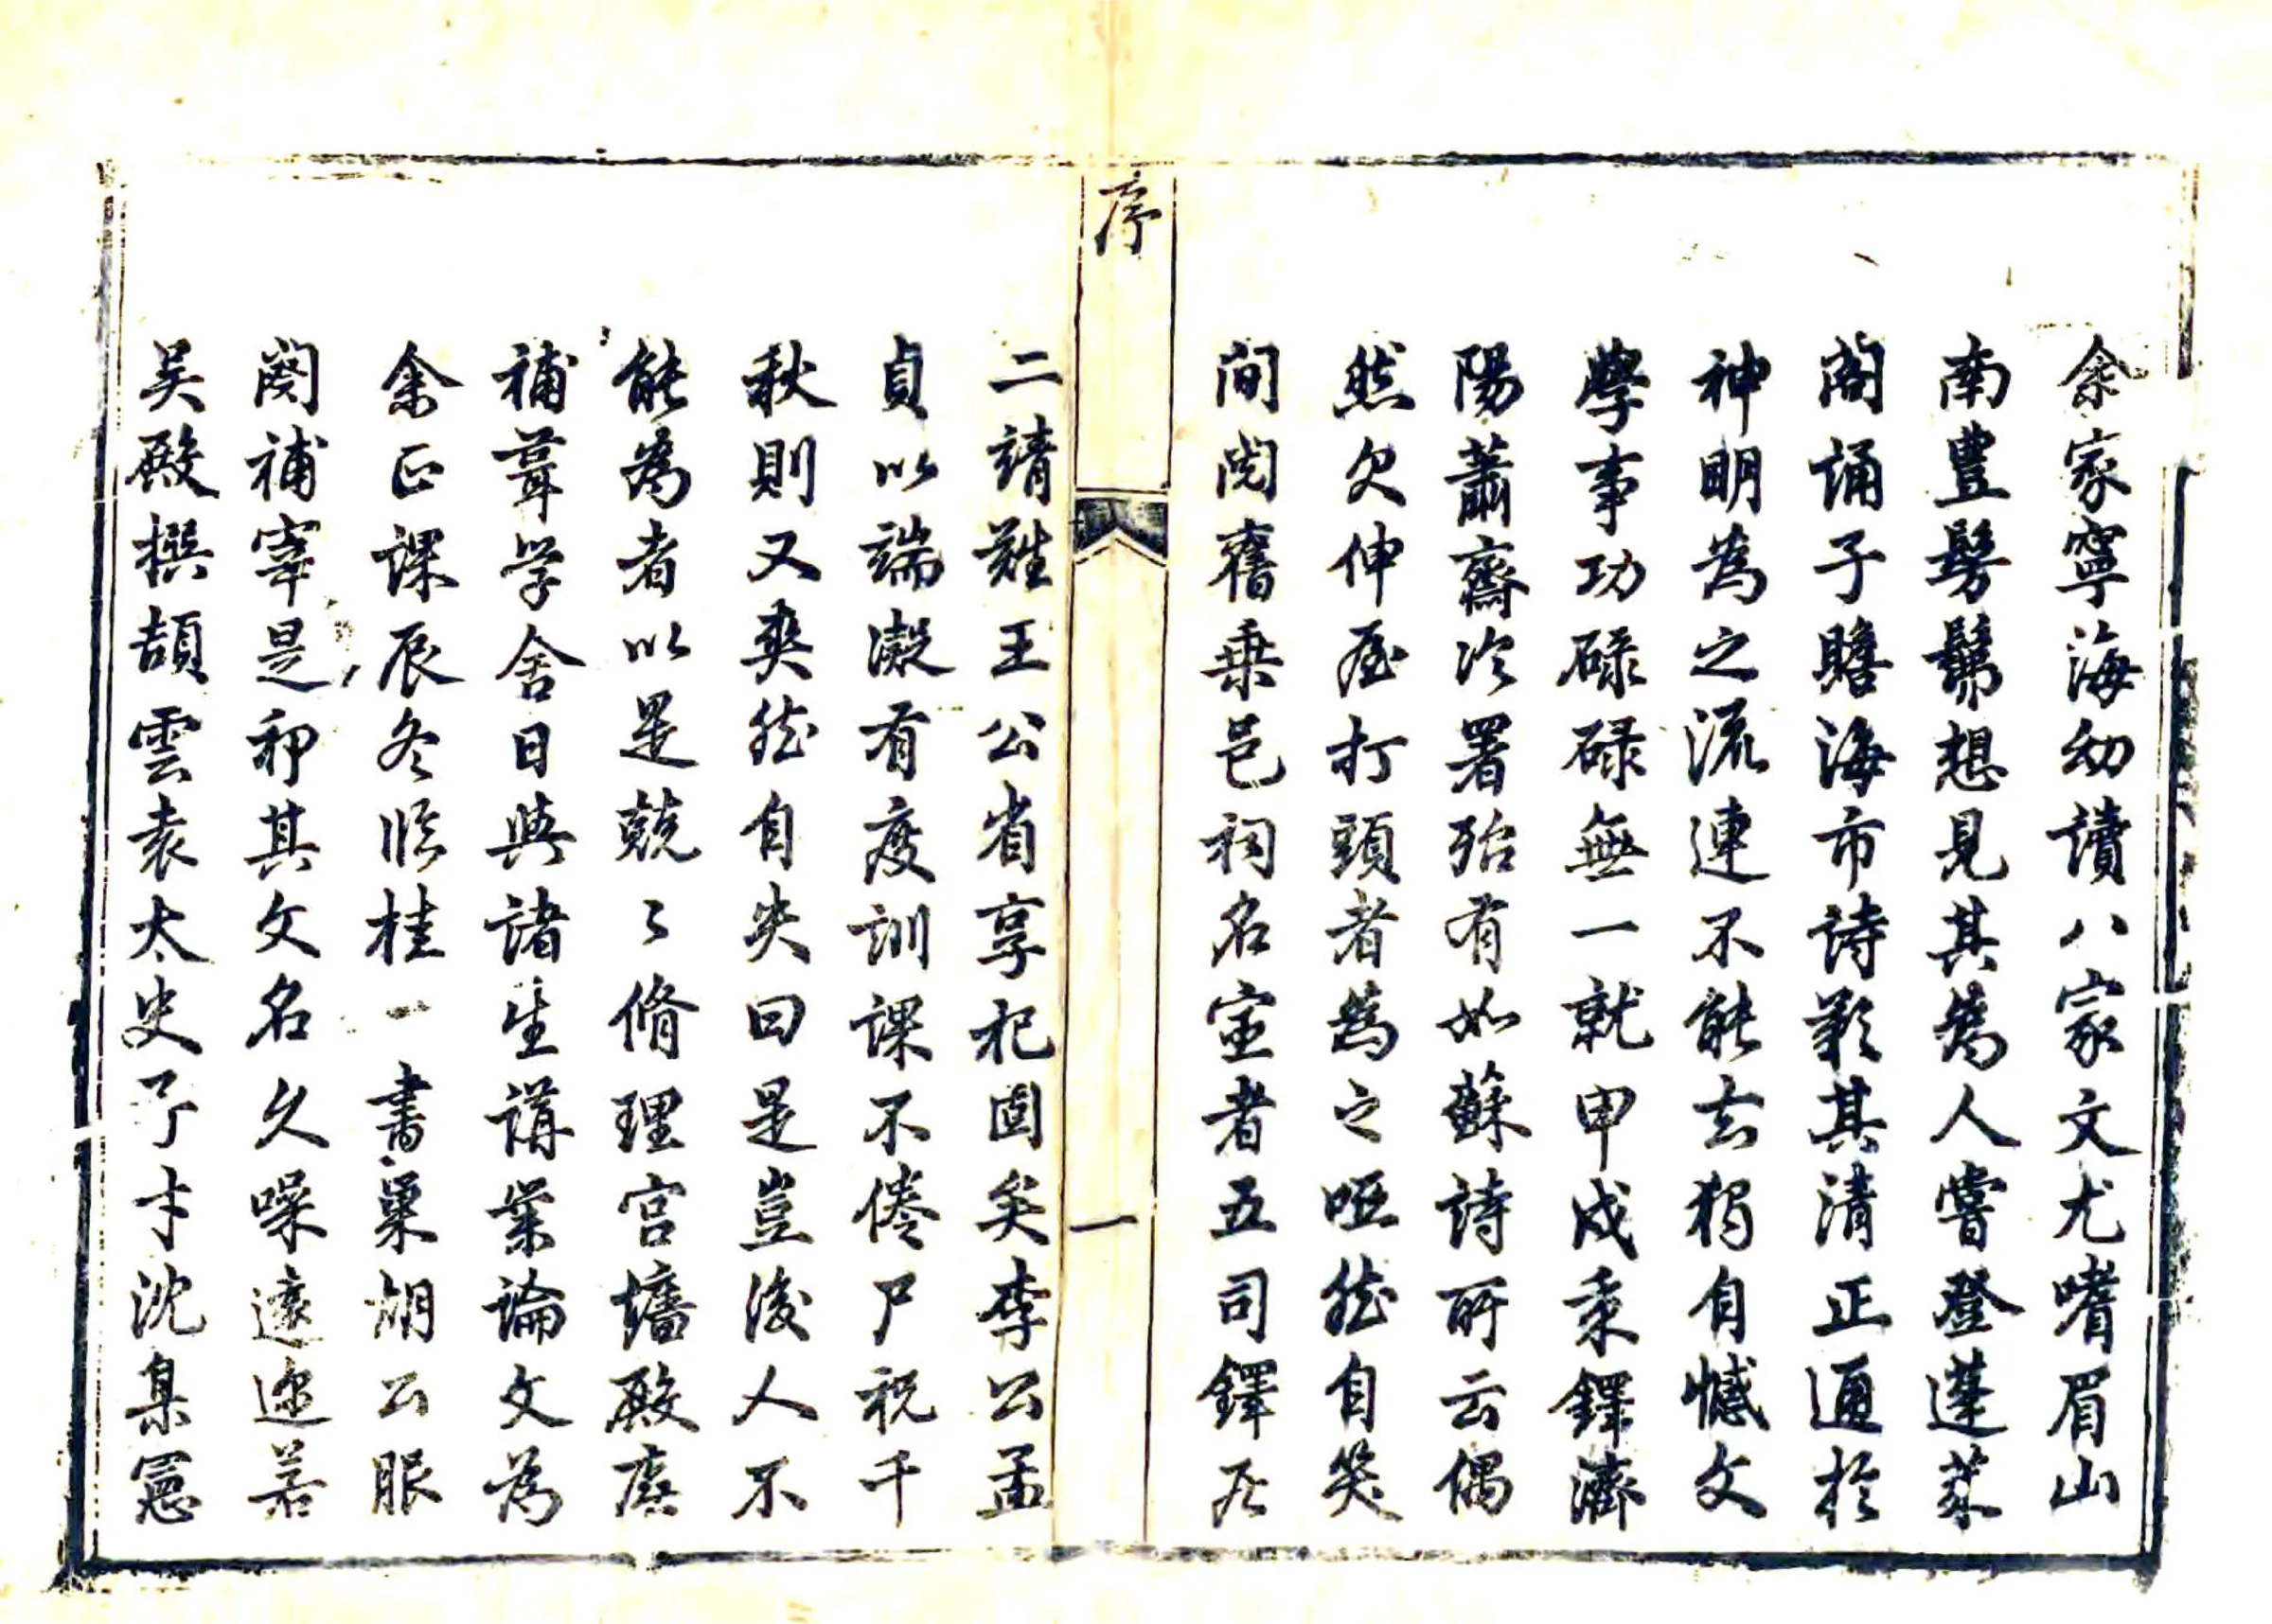 余家寧海幼讀八家文尤嗜眉山
南豊髣髴想見其為人嘗登蓬萊
閣誦子瞻海市詩歎其清正通於
神明為之流連不能去獨自憾文
學事功碌碌無一就甲戌秉鐸濟
陽蕭齋冷署殆有如蘇詩所云偶
然欠伸屋打頭者為之啞然自笑
间閲舊乗邑祠名宦者五司鐸居
序
一
二靖難王公省享祀固矣李公孟
貞以端凝有度訓課不倦尸祝千
秋則又爽然自失曰是豈後人不
能為者以是兢〻脩理宫墻殿廡
補葺学舍日與諸生講業論文為
余正課辰冬臨桂一書巢胡公服
闋補宰是邦其文名久噪遠迩若
吴殿撰頡雲袁太史子才沈臬憲